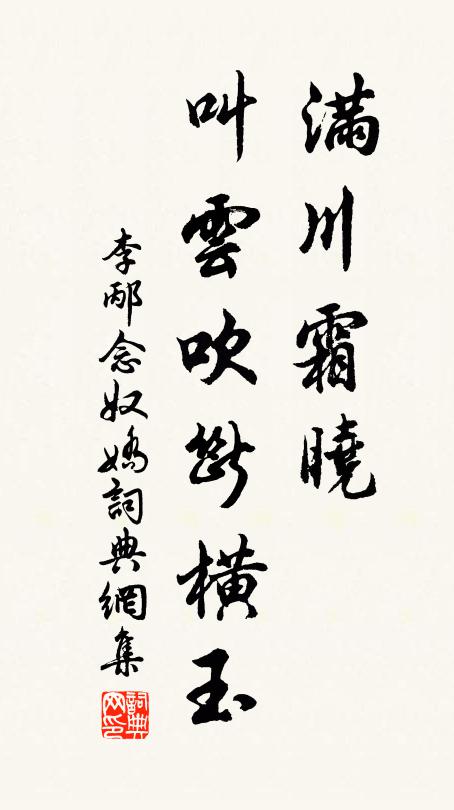 滿川霜曉
叫雲吹斷橫玉
李邴念奴嬌詞典網集
詞典网印